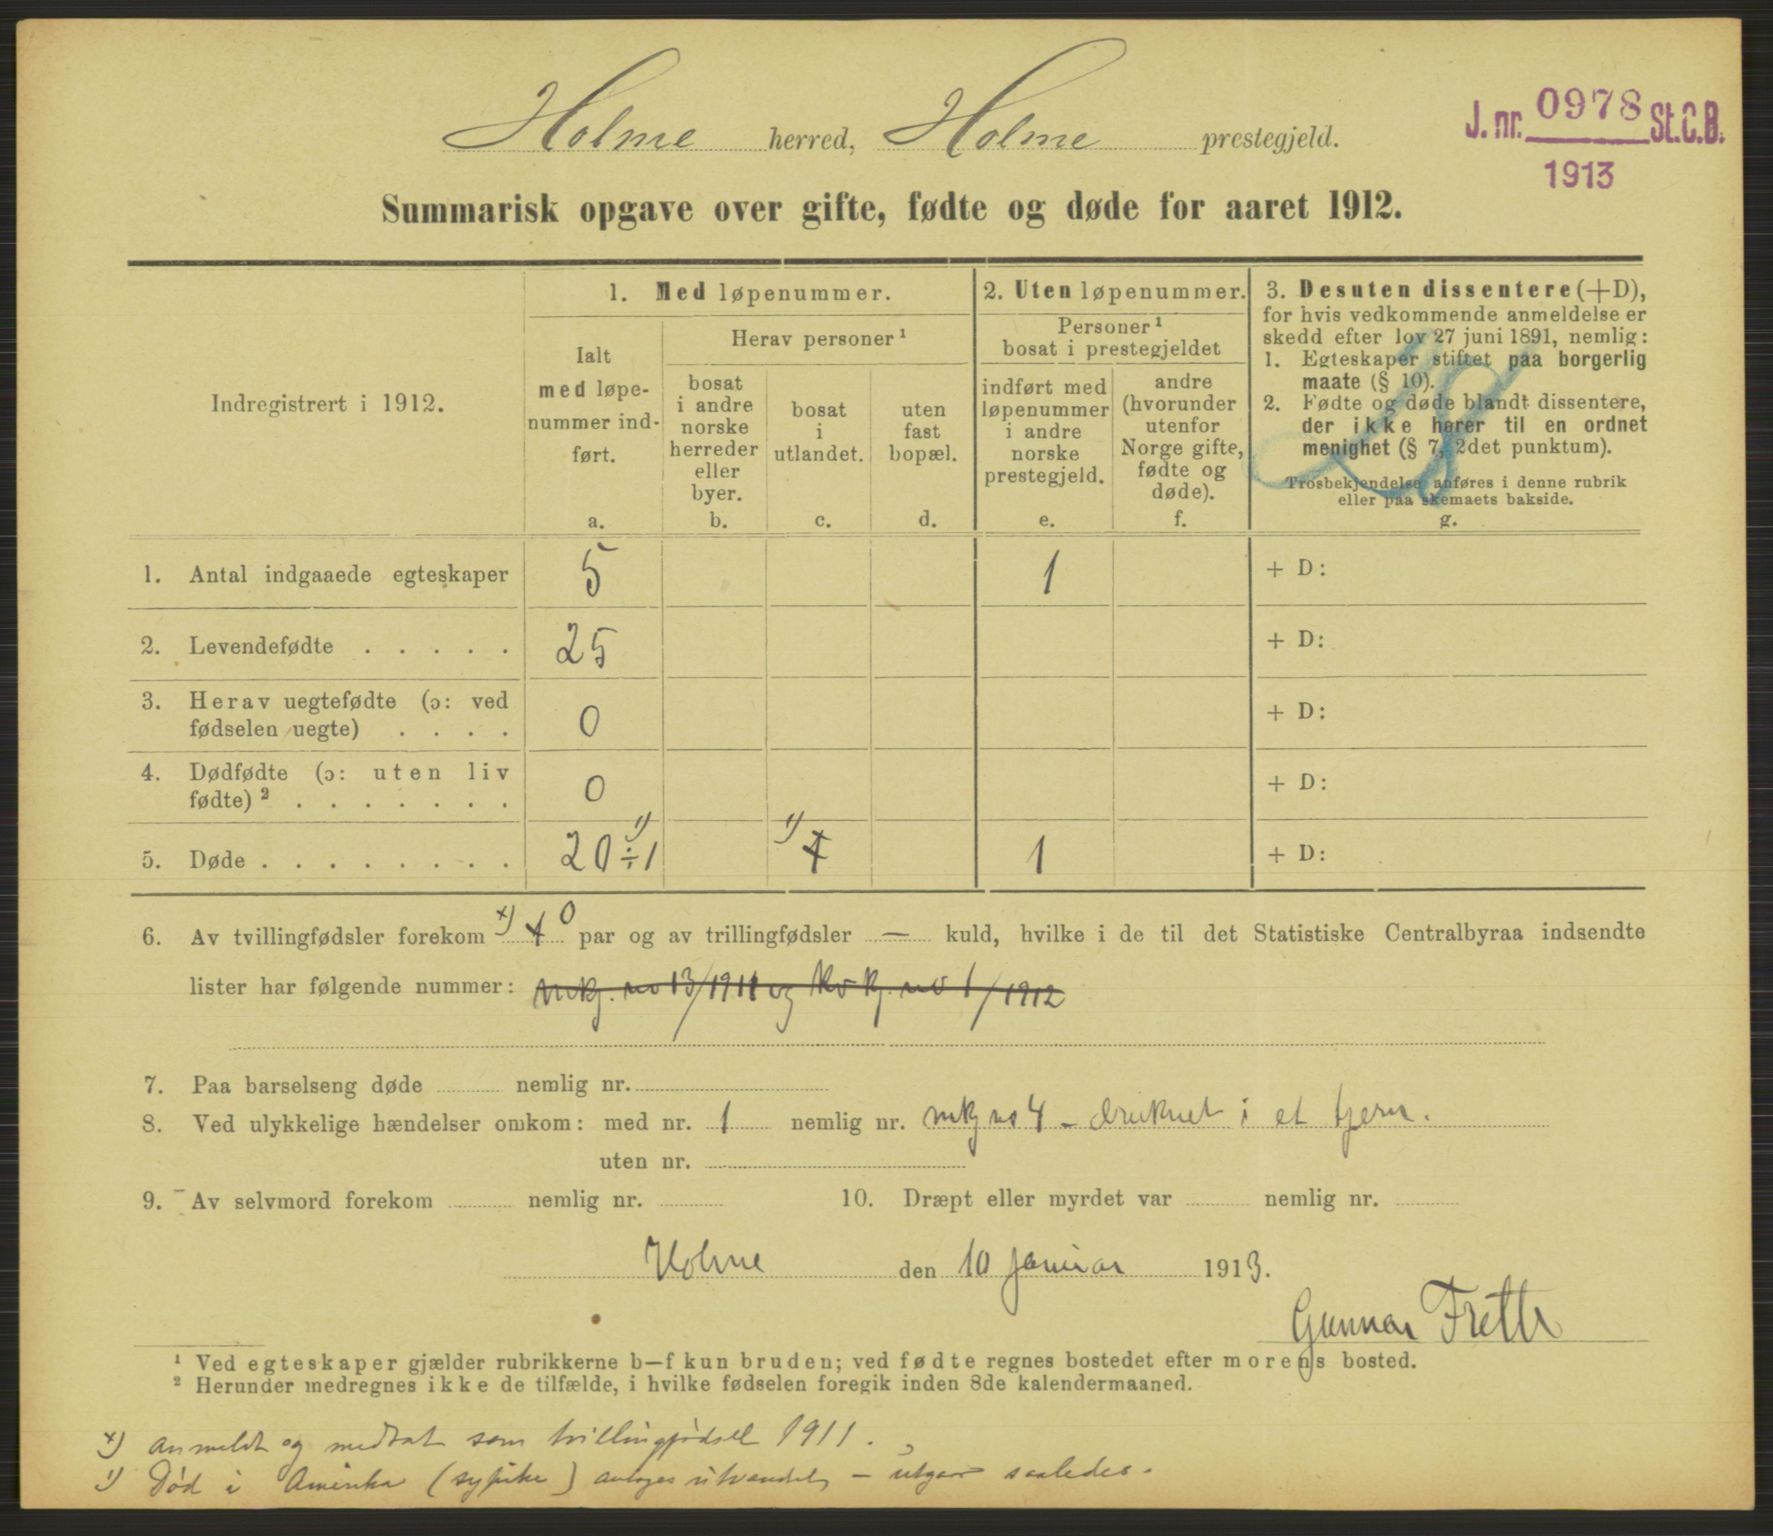 Holme herred, Holme prestegjeld.
J. nr. 0978 St.C.B.
1913
Summarisk opgave over gifte, fødte og døde for aaret 1912.
Indregistrert i 1912.
1. Med løpenummer.
Ialt
med løpe-
nummer ind-
ført.
a.
Herav personer ¹
bosat
i andre
norske
herreder
eller
byer.
b.
bosat
i
utlandet.
c.
uten
fast
bopæl.
d.
2. Uten løpenummer.
Personer ¹
bosat i prestegjeldet
indført med
løpenummer
i andre
norske
prestegjeld.
e.
andre
(hvorunder
utenfor
Norge gifte,
fødte og
døde).
f.
3. Desuten dissentere (+D),
for hvis vedkommende anmeldelse er
skedd efter lov 27 juni 1891, nemlig:
1. Egteskaper stiftet paa borgerlig
maate (§ 10).
2. Fødte og døde blandt dissentere,
der ikke hører til en ordnet
menighet (§ 7, 2det punktum).
Trosbekjendelse anføres i denne rubrik
eller paa skemaets bakside.
g.
1. Antal indgaaede egteskaper 5 1 + D:
2. Levendefødte . . . . . 25 + D:
3. Herav uegtefødte (ɔ: ved
fødselen uegte) . . . . 0 + D:
4. Dødfødte (ɔ: uten liv
fødte) ² . . . . . . . 0 + D:
5. Døde . . . . . . . . 20 ÷ 1 ¹) ¹) 1 1 + D:
6. Av tvillingfødsler forekom ˣ) 1 0 par og av trillingfødsler — kuld, hvilke i de til det Statistiske Centralbyraa indsendte
lister har følgende nummer: mkj. no 13/1911 og kvkj. no 1/1912
7. Paa barselseng døde nemlig nr.
8. Ved ulykkelige hændelser omkom: med nr. 1 nemlig nr. mkj no 4 - druknet i et tjern.
uten nr.
9. Av selvmord forekom nemlig nr. 10. Dræpt eller myrdet var nemlig nr.
Holme den 10 januar 1913.
Gunnar Frette
¹ Ved egteskaper gjælder rubrikkerne b—f kun bruden; ved fødte regnes bostedet efter morens bosted.
² Herunder medregnes ikke de tilfælde, i hvilke fødselen foregik inden 8de kalendermaaned.
ˣ) anmeldt og medtat som tvillingfødsel 1911.
¹) Død i Amerika ( ) antages utvandret, - utgaar saaledes.